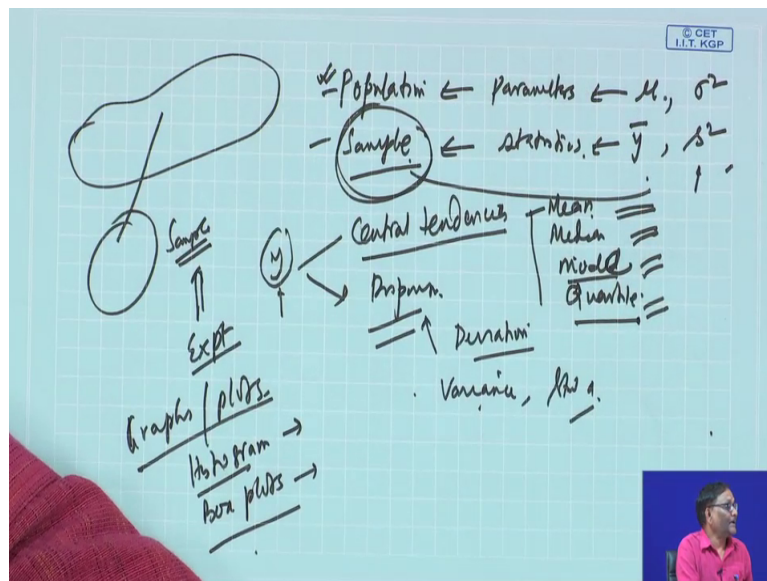 © CET
I.I.T. KGP
Population ← Parameters ← μ, σ²
- Sample ← Statistics ← ȳ, s²
Sample
y
Central tendencies
Mean
Median
Mode
Quartile
Dispersion
Deviation
Variance,
Expt
Graphs / plots
Histogram →
Box plots →